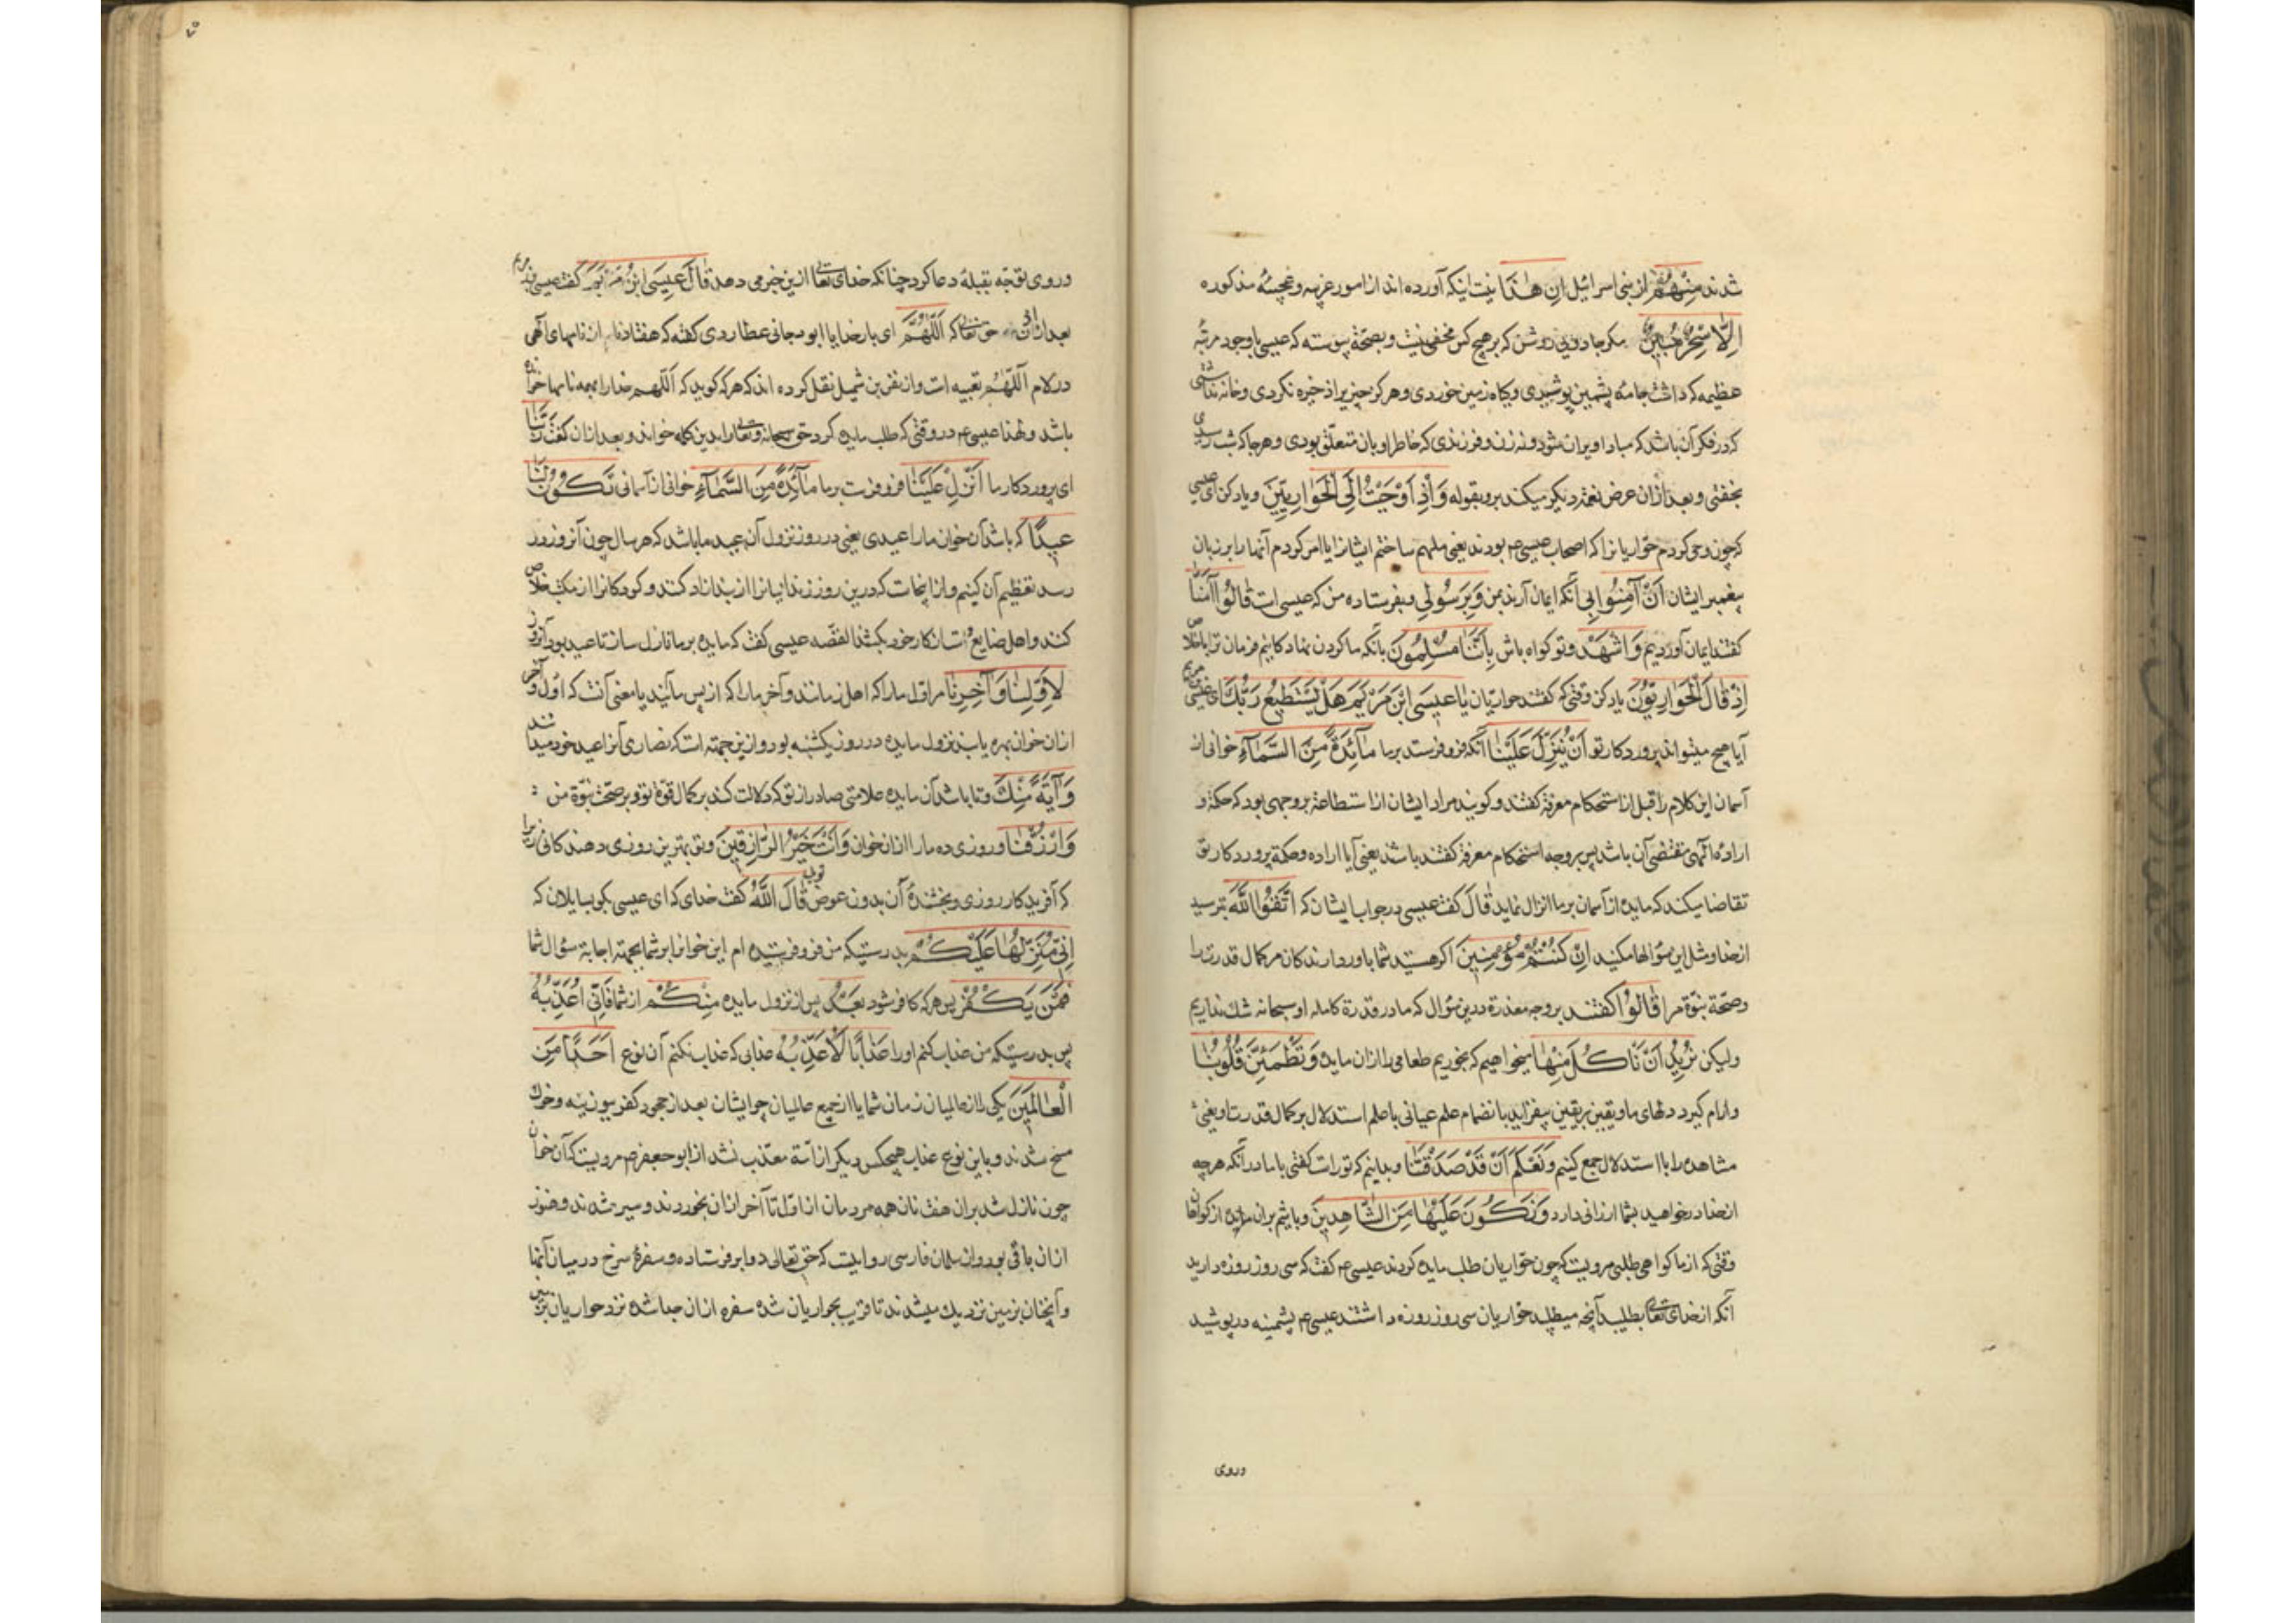 شدند مِنْهُمْ از بنی اسرائیل اِن هٰذَا نیست اینکه آورده اند از امور غریبه و عجیبهٔ مذکوره
اِلَّا سِحْرٌ مُبِینٌ مکر جادویی روشن که بر هیچ کس مخفی نیست و بصحّة پیوسته که عیسی باوجود مرتبهٔ
عظیمه که داشت جامهٔ پشمین پوشیدی و گیاه زمین خوردی و هرگز چیزی را ذخیره نکردی و خانه نداشتی
که در فکر آن باشد که مبادا ویران شود و نه زن و فرزندی که خاطر او بان متعلّق بودی و هر جا که شب رسیدی
بخفتی و بعد ازان عرض نعمة دیگر میکند برو بقوله وَاِذْ اَوْحَیْتُ اِلَی الْحَوَارِیّینَ و یاد کن ای عیسی
که چون وحی کردم حواریانرا که اصحاب عیسی م بودند یعنی ملهم ساختم ایشانرا یا امر کردم آنها را بر زبان
پیغمبر ایشان اَنْ آمِنُوا بِی آنکه ایمان آرند بمن وَبِرَسُولِی و بفرستاده من که عیسی است قَالُوا آمَنَّا
گفتند ایمان آوردیم وَاشْهَدْ و تو گواه باش بِاَنَّنَا مُسْلِمُونَ بانکه ما گردن نهادگانیم فرمان ترا باخلاص
اِذْ قَالَ الْحَوَارِیُّونَ یاد کن وقتی که گفتند حواریان یَا عِیسَی ابْنَ مَرْیَمَ هَلْ یَسْتَطِیعُ رَبُّكَ ای عیسی مریم
آیا هیچ میتواند پروردگار تو اَنْ یُنَزِّلَ عَلَیْنَا آنکه فرو فرستد بر ما مَآئِدَةً مِنَ السَّمَآءِ خوانی از
آسمان این کلام را قبل از استحکام معرفة گفتند و گویند مراد ایشان از استطاعة بر وجهی بود که حکمة و
ارادهٔ الهی مقتضی آن باشد پس بر وجه استحکام معرفة گفته باشند یعنی آیا اراده و حکمة پروردگار تو
تقاضا میکند که مایده از آسمان بر ما انزال نماید قَالَ گفت عیسی در جواب ایشان که اتَّقُوا اللّٰهَ بترسید
از خدا و مثل این سؤالها مکنید اِنْ کُنْتُمْ مُؤْمِنِینَ اگر هستید شما باور دارندگان مر کمال قدرت را
و صحّة نبوّة مرا قَالُوا گفتند بر وجه معذرة درین سؤال که ما در قدرة کامله او سبحانه شك نداریم
ولیکن نُرِیدُ اَنْ نَاْکُلَ مِنْهَا میخواهیم که بخوریم طعامی را ازان مایده وَتَطْمَئِنَّ قُلُوبُنَا
و ارام گیرد دلهای ما و یقین بر یقین بیفزاید بانضمام علم عیانی با علم استدلال بر کمال قدرت او یعنی
مشاهده را با استدلال جمع کنیم وَنَعْلَمَ اَنْ قَدْ صَدَقْتَنَا و بدانیم که تو راست گفتی با ما در آنکه هر چه
از خدا درخواهید بشما ارزانی دارد وَنَکُونَ عَلَیْهَا مِنَ الشَّاهِدِینَ و باشیم بران مایده از گواهان
وقتی که از ما گواهی طلبی مرویست که چون حواریان طلب مایده کردند عیسی م گفت که سی روز روزه دارید
آنکه از خدای تعالی بطلبید آنچه میطلبید حواریان سی روز روزه داشتند عیسی م پشمینه درپوشید
وروی
و روی توجّه بقبلهٔ دعا کرد چنانکه خدای تعالی ازین خبر می دهد قَالَ عِیسَی ابْنُ مَرْیَمَ گفت عیسی بن مریم
بعد ازان حق تعالی که اَللّٰهُمَّ ای بار خدایا ابو رجائی عطاردی گفته که هفتاد نام از نامهای الهی
در کلام اللّٰهُمّ تعبیه است و از نضر بن شمیل نقل کرده اند که هر که گوید که اللّٰهم خدا را بهمه نامها خوانده
باشد و لهذا عیسی م در وقتی که طلب مایده کرد حق سبحانه وتعالی را بدین کله خواند و بعد ازان گفت رَبَّنَا
ای پروردگار ما اَنْزِلْ عَلَیْنَا فرو فرست بر ما مَآئِدَةً مِنَ السَّمَآءِ خوانی از آسمانی تَکُونُ لَنَا
عِیدًا که باشد آن خوان ما را عیدی یعنی در روز نزول آن عید ما باشد که هر سال چون آنروز در
رسد تعظیم آن کنیم و از اینجاست که درین روز زندانیانرا از بند ازاد کنند و کودکانرا از مکتب خلاص
کنند و اهل ضایع از کار خود بکشند القصّه عیسی گفت که مایده بر ما نازل ساز تا عید بود آنروز
لِاَوَّلِنَا وَآخِرِنَا مر اوّل ما را که اهل زمانند و آخر ما را که از پس ما آیند یا معنی آنست که اول و آخر
ازان خوان بهره یابند نزول مایده در روز یکشنبه بود و ازین جهته است که نصاری آنرا عید خود میدانند
وَآیَةً مِنْكَ و تا باشد آن مایده علامتی صادر از تو که دلالت کند بر کمال قوّة تو و بر صحّت نبوّة من
وَارْزُقْنَا و روزی ده ما را ازان خوان وَاَنْتَ خَیْرُ الرَّازِقِینَ و تو بهترین روزی دهندگانی زیرا
که آفریدگار روزی و بخشندهٔ آن بدون عوض توی قَالَ اللّٰهُ گفت خدای که ای عیسی بگو بسایلان که
اِنِّی مُنَزِّلُهَا عَلَیْکُمْ بدرستیکه من فرو فرستنده ام این خوانرا بر شما بجهته اجابة سؤال شما
فَمَنْ یَکْفُرْ پس هر که کافر شود بَعْدُ پس از نزول مایده مِنْکُمْ از شما فَاِنِّی اُعَذِّبُهُ
پس بدرستیکه من عذاب کنم او را عَذَابًا لَا اُعَذِّبُهُ عذابی که عذاب نکنم آن نوع اَحَدًا مِنَ
الْعَالَمِینَ یکی را از عالمیان زمان شما یا از جمیع عالمیان چو ایشان بعد از جحود کفر ببوزینه و خوك
مسخ شدند و باین نوع عذاب هیچکس دیگر از امّة معذّب نشد از ابو جعفر م مرویست که آن خوان
چون نازل شد بران هفت نان همه مردمان از اوّل تا آخر ازان بخوردند و سیر شدند و هنوز
ازان باقی بود و از سلمان فارسی روایتست که حق تعالی دو ابر فرستاده و سفرهٔ سرخ در میان آنها
و آنچنان بزمین نزدیك میشدند تا قریب بحواریان شده سفره ازان جدا شده نزد حواریان بزمین